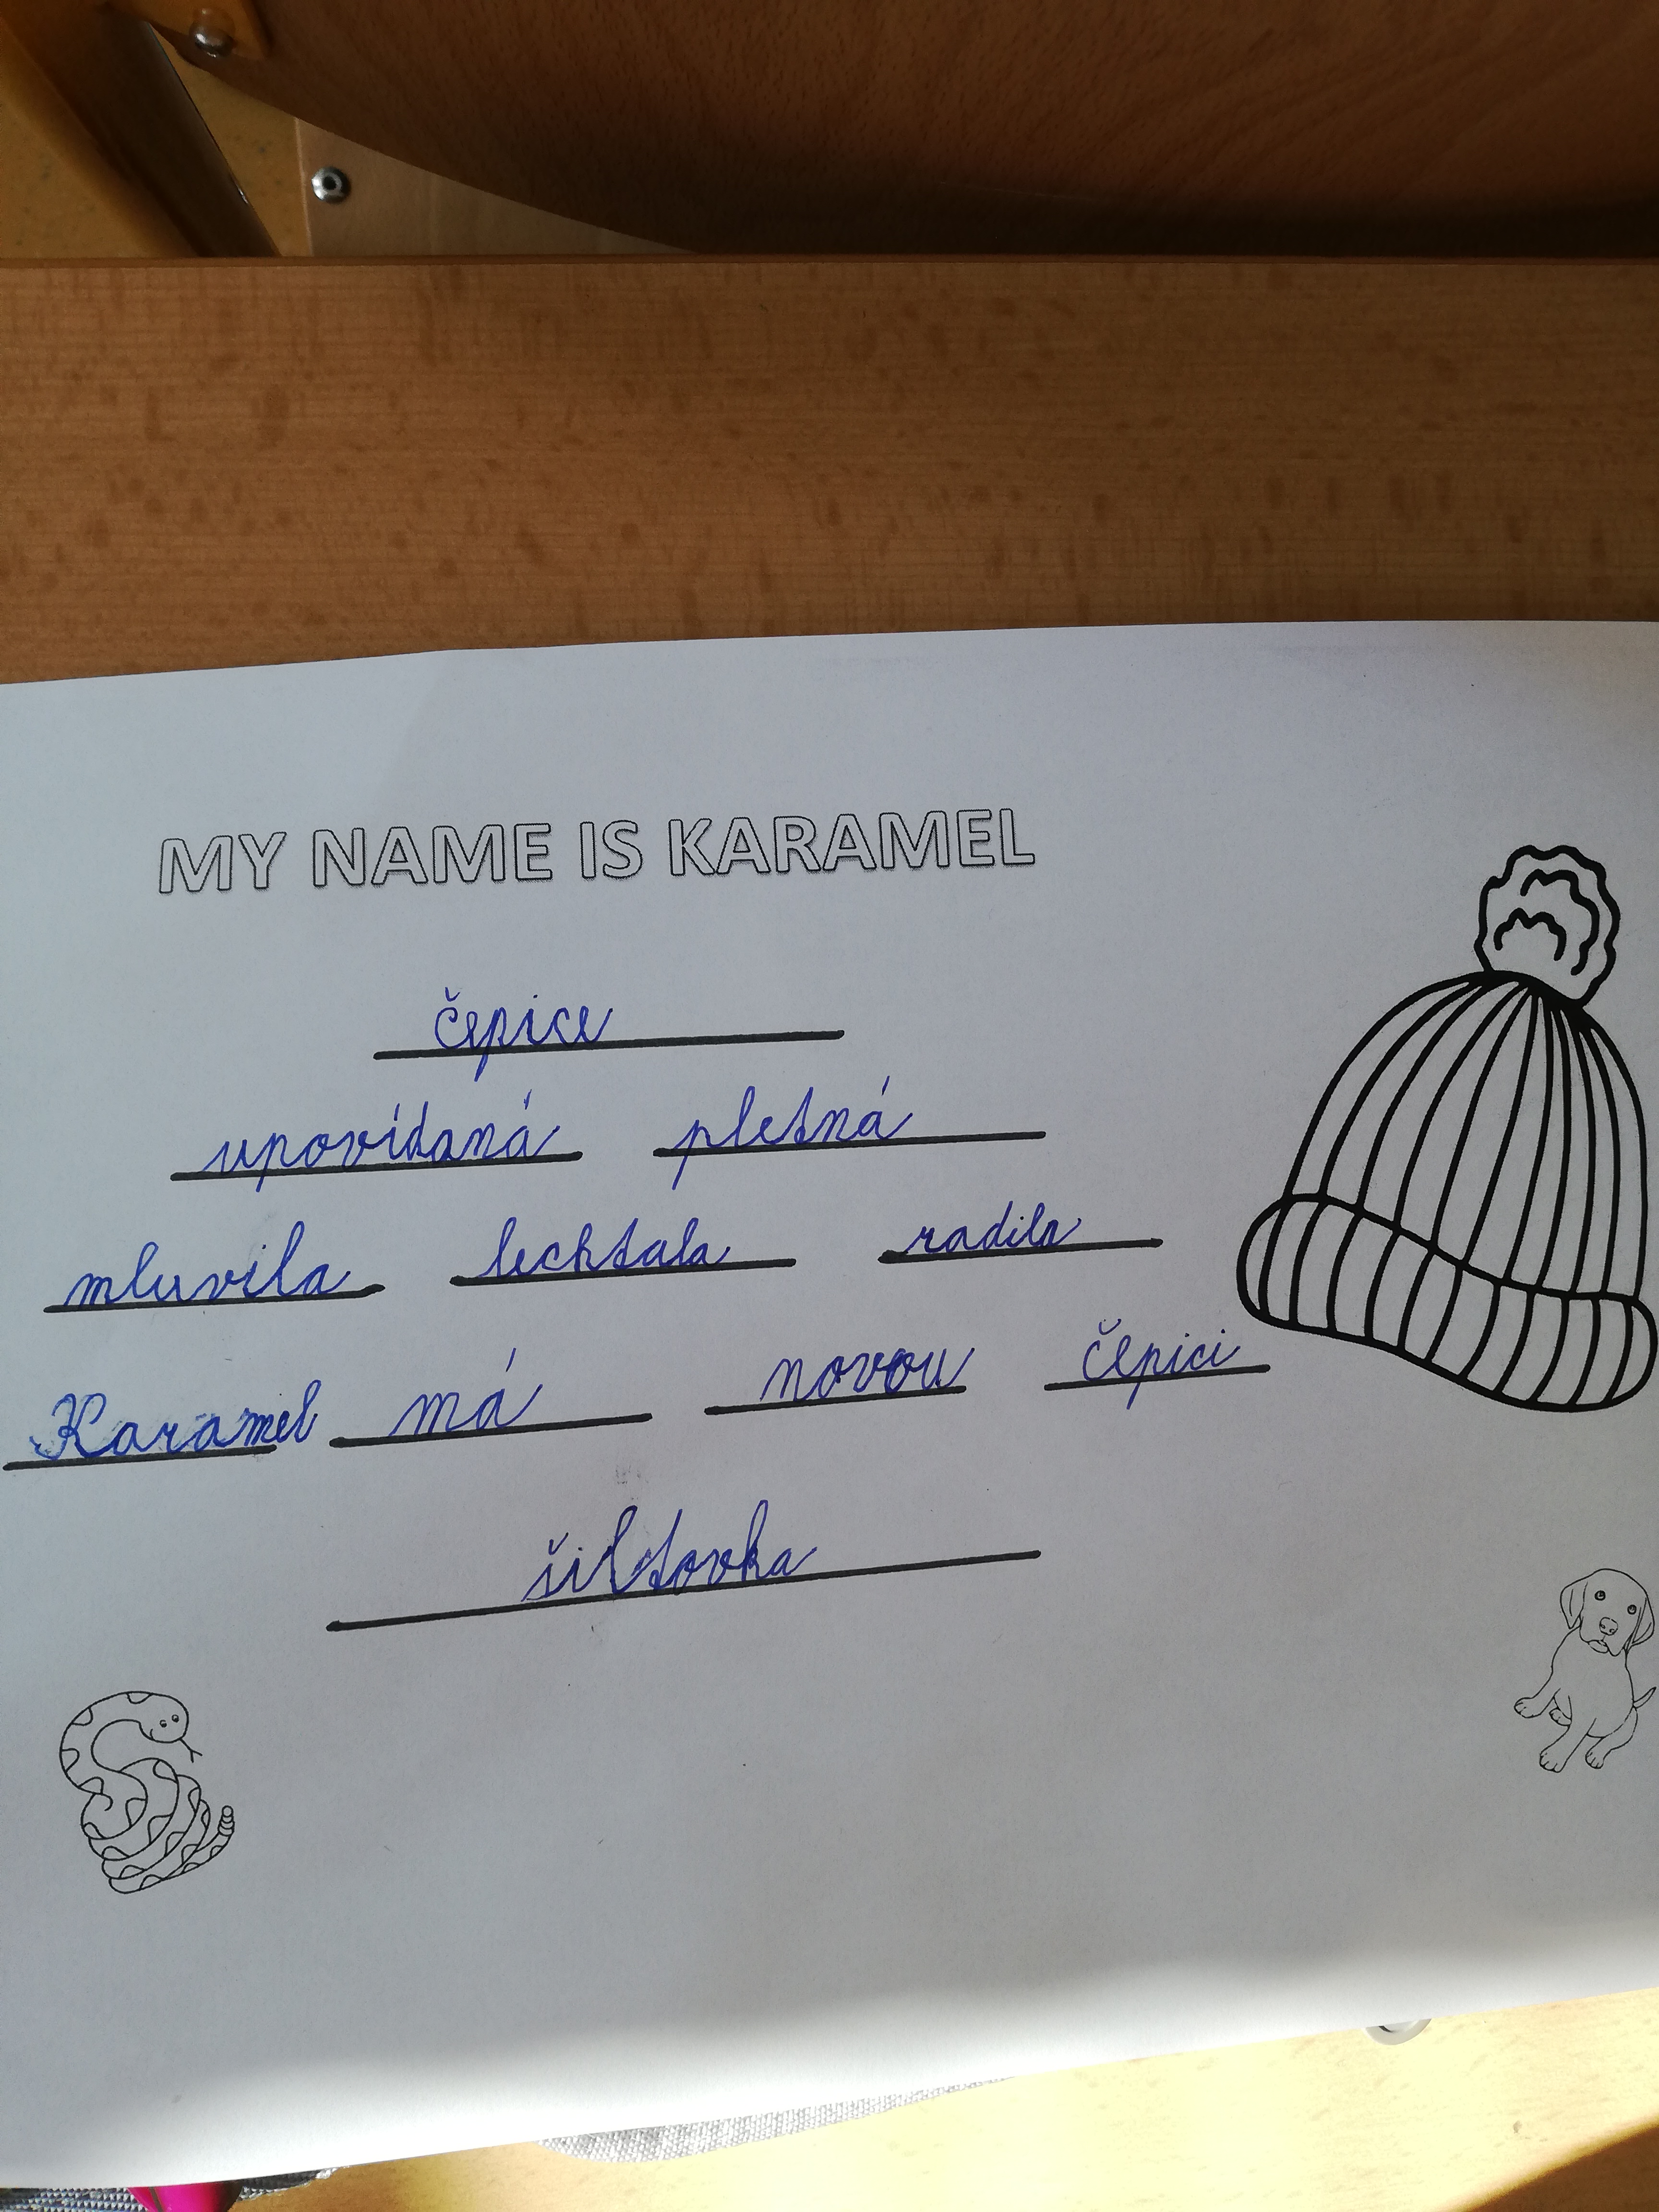 MY NAME IS KARAMEL
čepice
upovídaná pletná
mluvila lechtala radila
Karamel má novou čepici
šiltovka